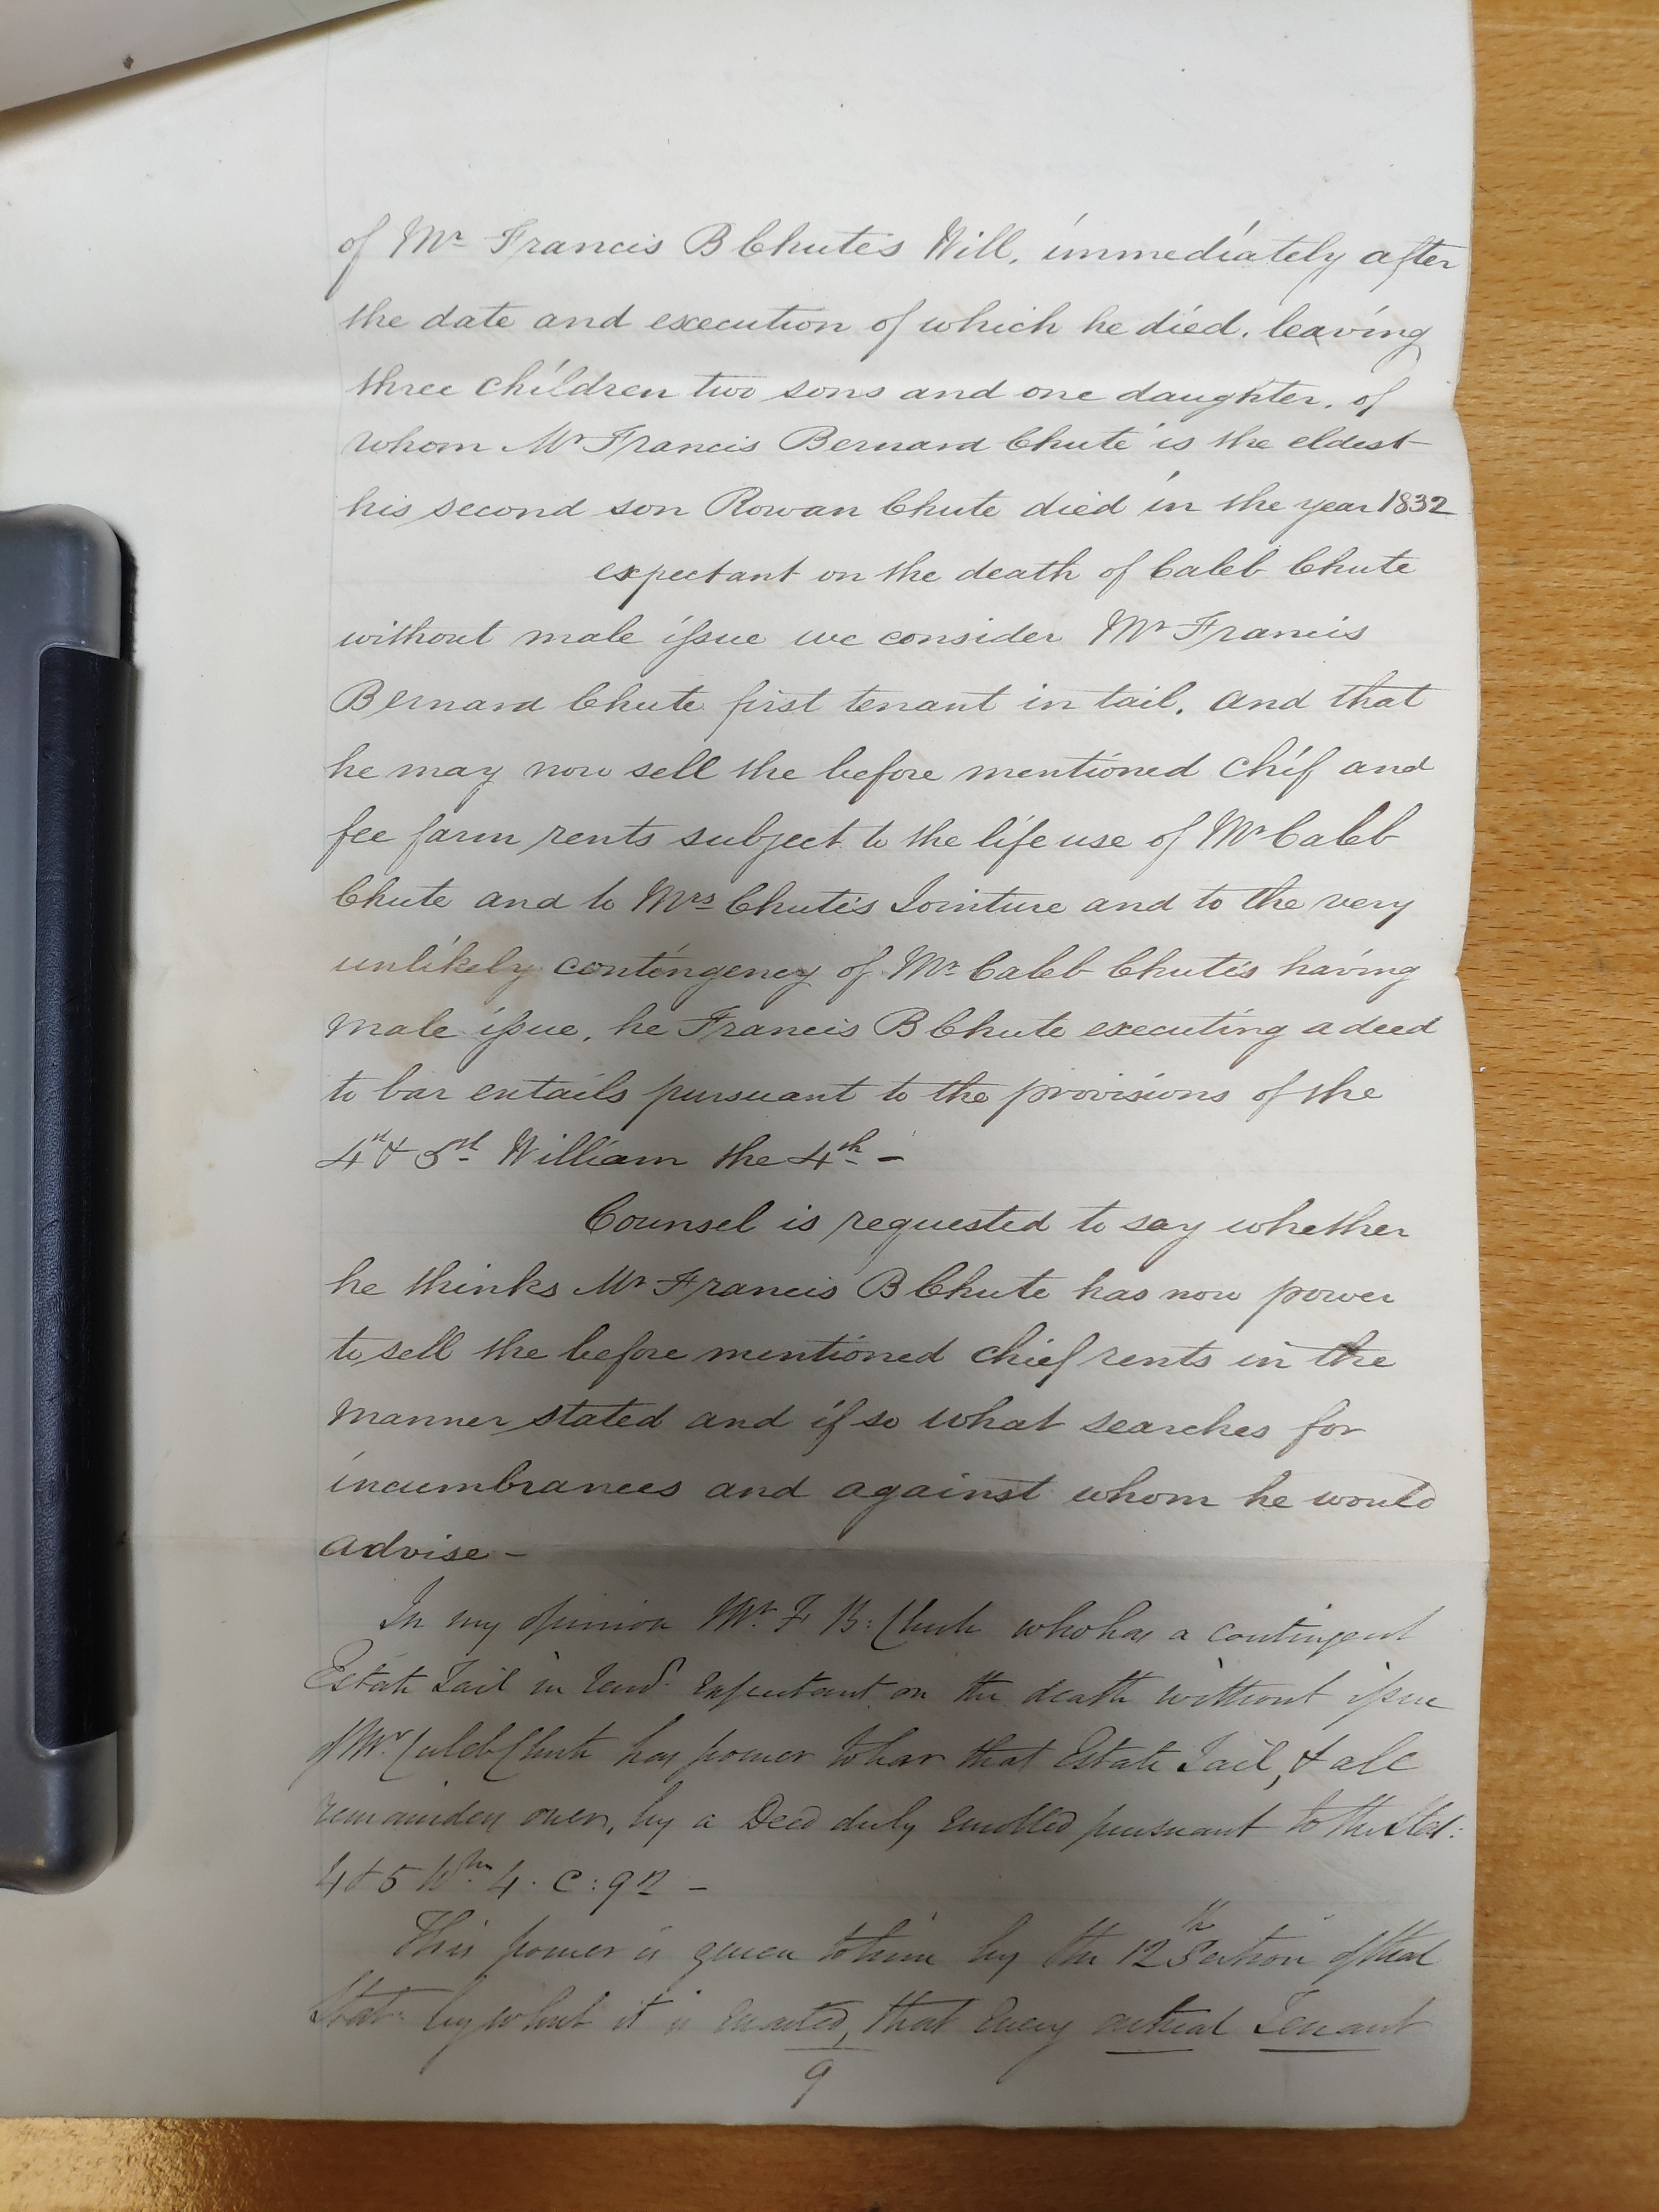 of Mr Francis B Chute's Will, immediately after
the date and execution of which he died, leaving
three children two sons and one daughter, of
whom Mr Francis Bernard Chute is the eldest
his second son Rowan Chute died in the year 1832
expectant on the death of Caleb Chute
without male issue we consider Mr Francis
Bernard Chute first tenant in tail. and that
he may now sell the before mentioned chif and
fee farm rents subject to the life use of Mr Caleb
Chute and to Mrs Chute's Jointure and to the very
unlikely contingency of Mr Caleb Chute's having
male issue, he Francis B Chute executing a deed
to bar entails pursuant to the provisions of the
4st & 5st William the 4th -
Counsel is requested to say whether
he thinks Mr Francis B Chute has now power
to sell the before mentioned chief rents in the
manner stated and if so what searches for
incumbrances and against whom he would
advise -
In my opinion Mr. F B: Chute who has a contingent
Estate Tail in Remd. Expectant on the death without issue
of Mr Caleb Chute has power to bar that Estate Tail, & all
remainders over, by a Deed duly enrolled pursuant to the Stat:
4 & 5 Wm. 4. C: 92 -
This power is given to him by the 12th Section of that
Stat: by which it is Enacted, that Every actual Tenant
9